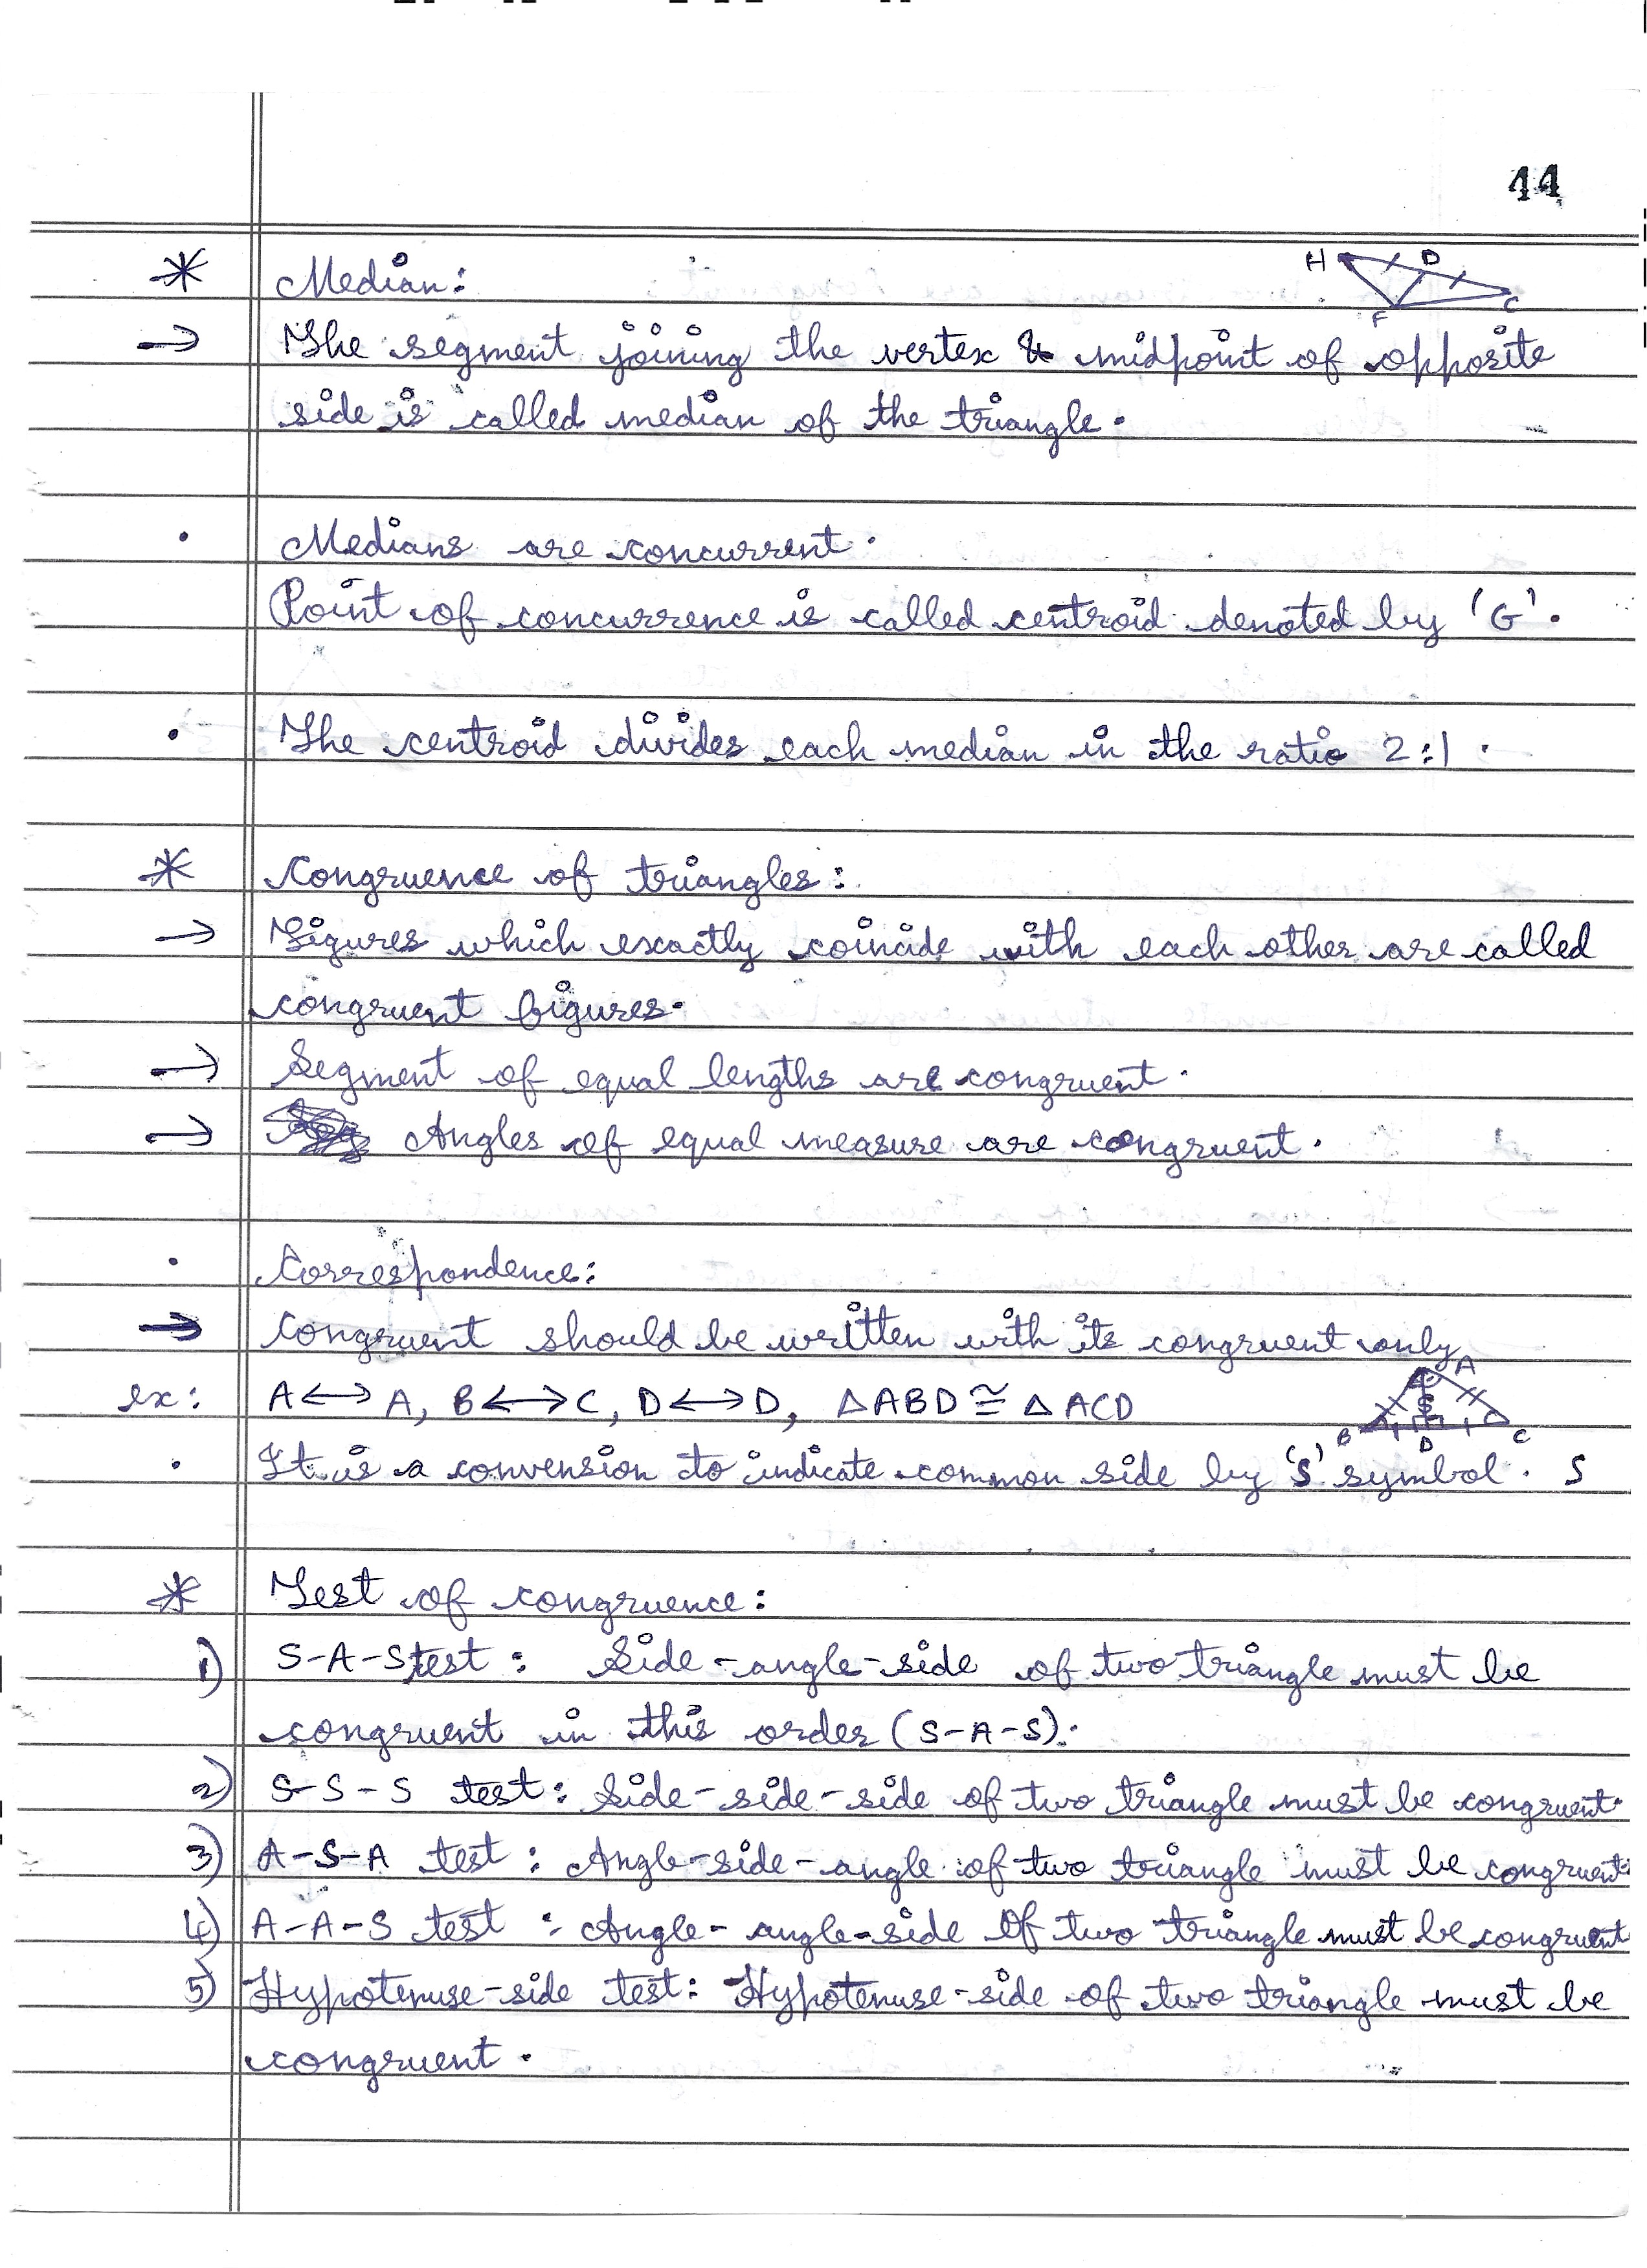 44
* Median:
H D F C
→ The segment joining the vertex & midpoint of opposite
side is called median of the triangle.
• Medians are concurrent.
Point of concurrence is called centroid denoted by 'G'.
• The centroid divides each median in the ratio 2:1.
* Congruence of triangles:
→ Figures which exactly coincide with each other are called
congruent figures.
→ Segment of equal lengths are congruent.
→ Angles of equal measure are congruent.
• Correspondence:
→ Congruent should be written with its congruent only
ex: A↔A, B↔C, D↔D, △ABD ≅ △ACD
A B D C
• It is a convension to indicate common side by 'S' symbol. S
* Test of congruence:
1) S-A-S test: Side-angle-side of two triangle must be
congruent in this order (S-A-S).
2) S-S-S test: Side-side-side of two triangle must be congruent.
3) A-S-A test: Angle-side-angle of two triangle must be congruent.
4) A-A-S test: Angle-angle-side of two triangle must be congruent
5) Hypotenuse-side test: Hypotenuse-side of two triangle must be
congruent.